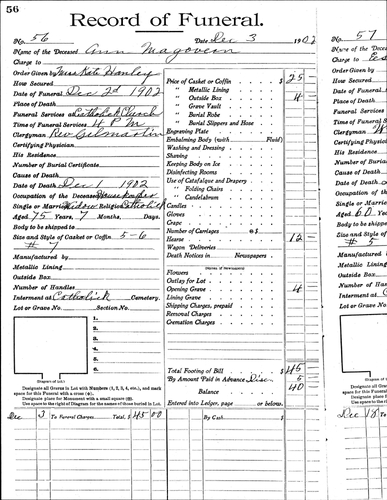 56
Record of Funeral.
No. 56 Date Dec 3 1902
Name of the Deceased Ann Magovern
Charge to
Order Given by Miss Kate Hanley
How Secured
Date of Funeral Dec 2d 1902
Place of Death
Funeral Services Catholick Church
Time of Funeral Services
Clergyman Rev Gilmartin
Certifying Physician
His Residence
Number of Burial Certificate
Cause of Death
Date of Death Dec 1 1902
Occupation of the Deceased Housekeeper
Single or Married Widow Religion Catholick
Aged 75 Years, 7 Months, Days.
Body to be shipped to
Size and Style of Casket or Coffin 5-6
# 7
Manufactured by
Metallic Lining
Outside Box
Number of Handles
Interment at Catholick Cemetery.
Lot or Grave No. Section No.
1.
2.
3.
4.
5.
6.
(Diagram of Lot.)
Designate all Graves in Lot with Numbers (1, 2, 3, 4, etc.), and mark
space for this Funeral with a cross (+).
Designate place for Monument with a small square (□).
Use space to the right of Diagram for the names of those buried in Lot.
Price of Casket or Coffin $ 25 -
" Metallic Lining
" Outside Box 4 -
" Grave Vault
" Burial Robe
" Burial Slippers and Hose
Engraving Plate
Embalming Body (with Fluid)
Washing and Dressing
Shaving
Keeping Body on Ice
Disinfecting Rooms
Use of Catafalque and Drapery
" Folding Chairs
" Candelabrum
Candles
Gloves
Crape
Number of Carriages @ $
Hearse 12 -
Wagon Deliveries
Death Notices in Newspapers
(Names of Newspapers)
Flowers
Outlay for Lot
Opening Grave 4
Lining Grave
Shipping Charges, prepaid
Removal Charges
Cremation Charges
Total Footing of Bill $ 45 -
By Amount Paid in Advance Disc 5
Balance 40
Entered into Ledger, page or below.
Dec 3 To Funeral Charges Total, $ 45 00 By Cash $
No. 57
Name of the
Charge to
Order Given
How Secured
Date of Funeral
Place of Death
Funeral Services
Time of Funeral
Clergyman
Certifying Phy
His Residence
Number of Bur
Cause of Death
Date of Death
Occupation of
Single or Marr
Aged 60 Ye
Body to be ship
Size and Style of
# 5
Manufactured
Metallic Lining
Outside Box
Number of Han
Interment at
Lot or Grave No.
(Diagram of Lot.)
Designate all Grave
space for this Funeral
Designate place for
Use space to the rig
Dec 18 To